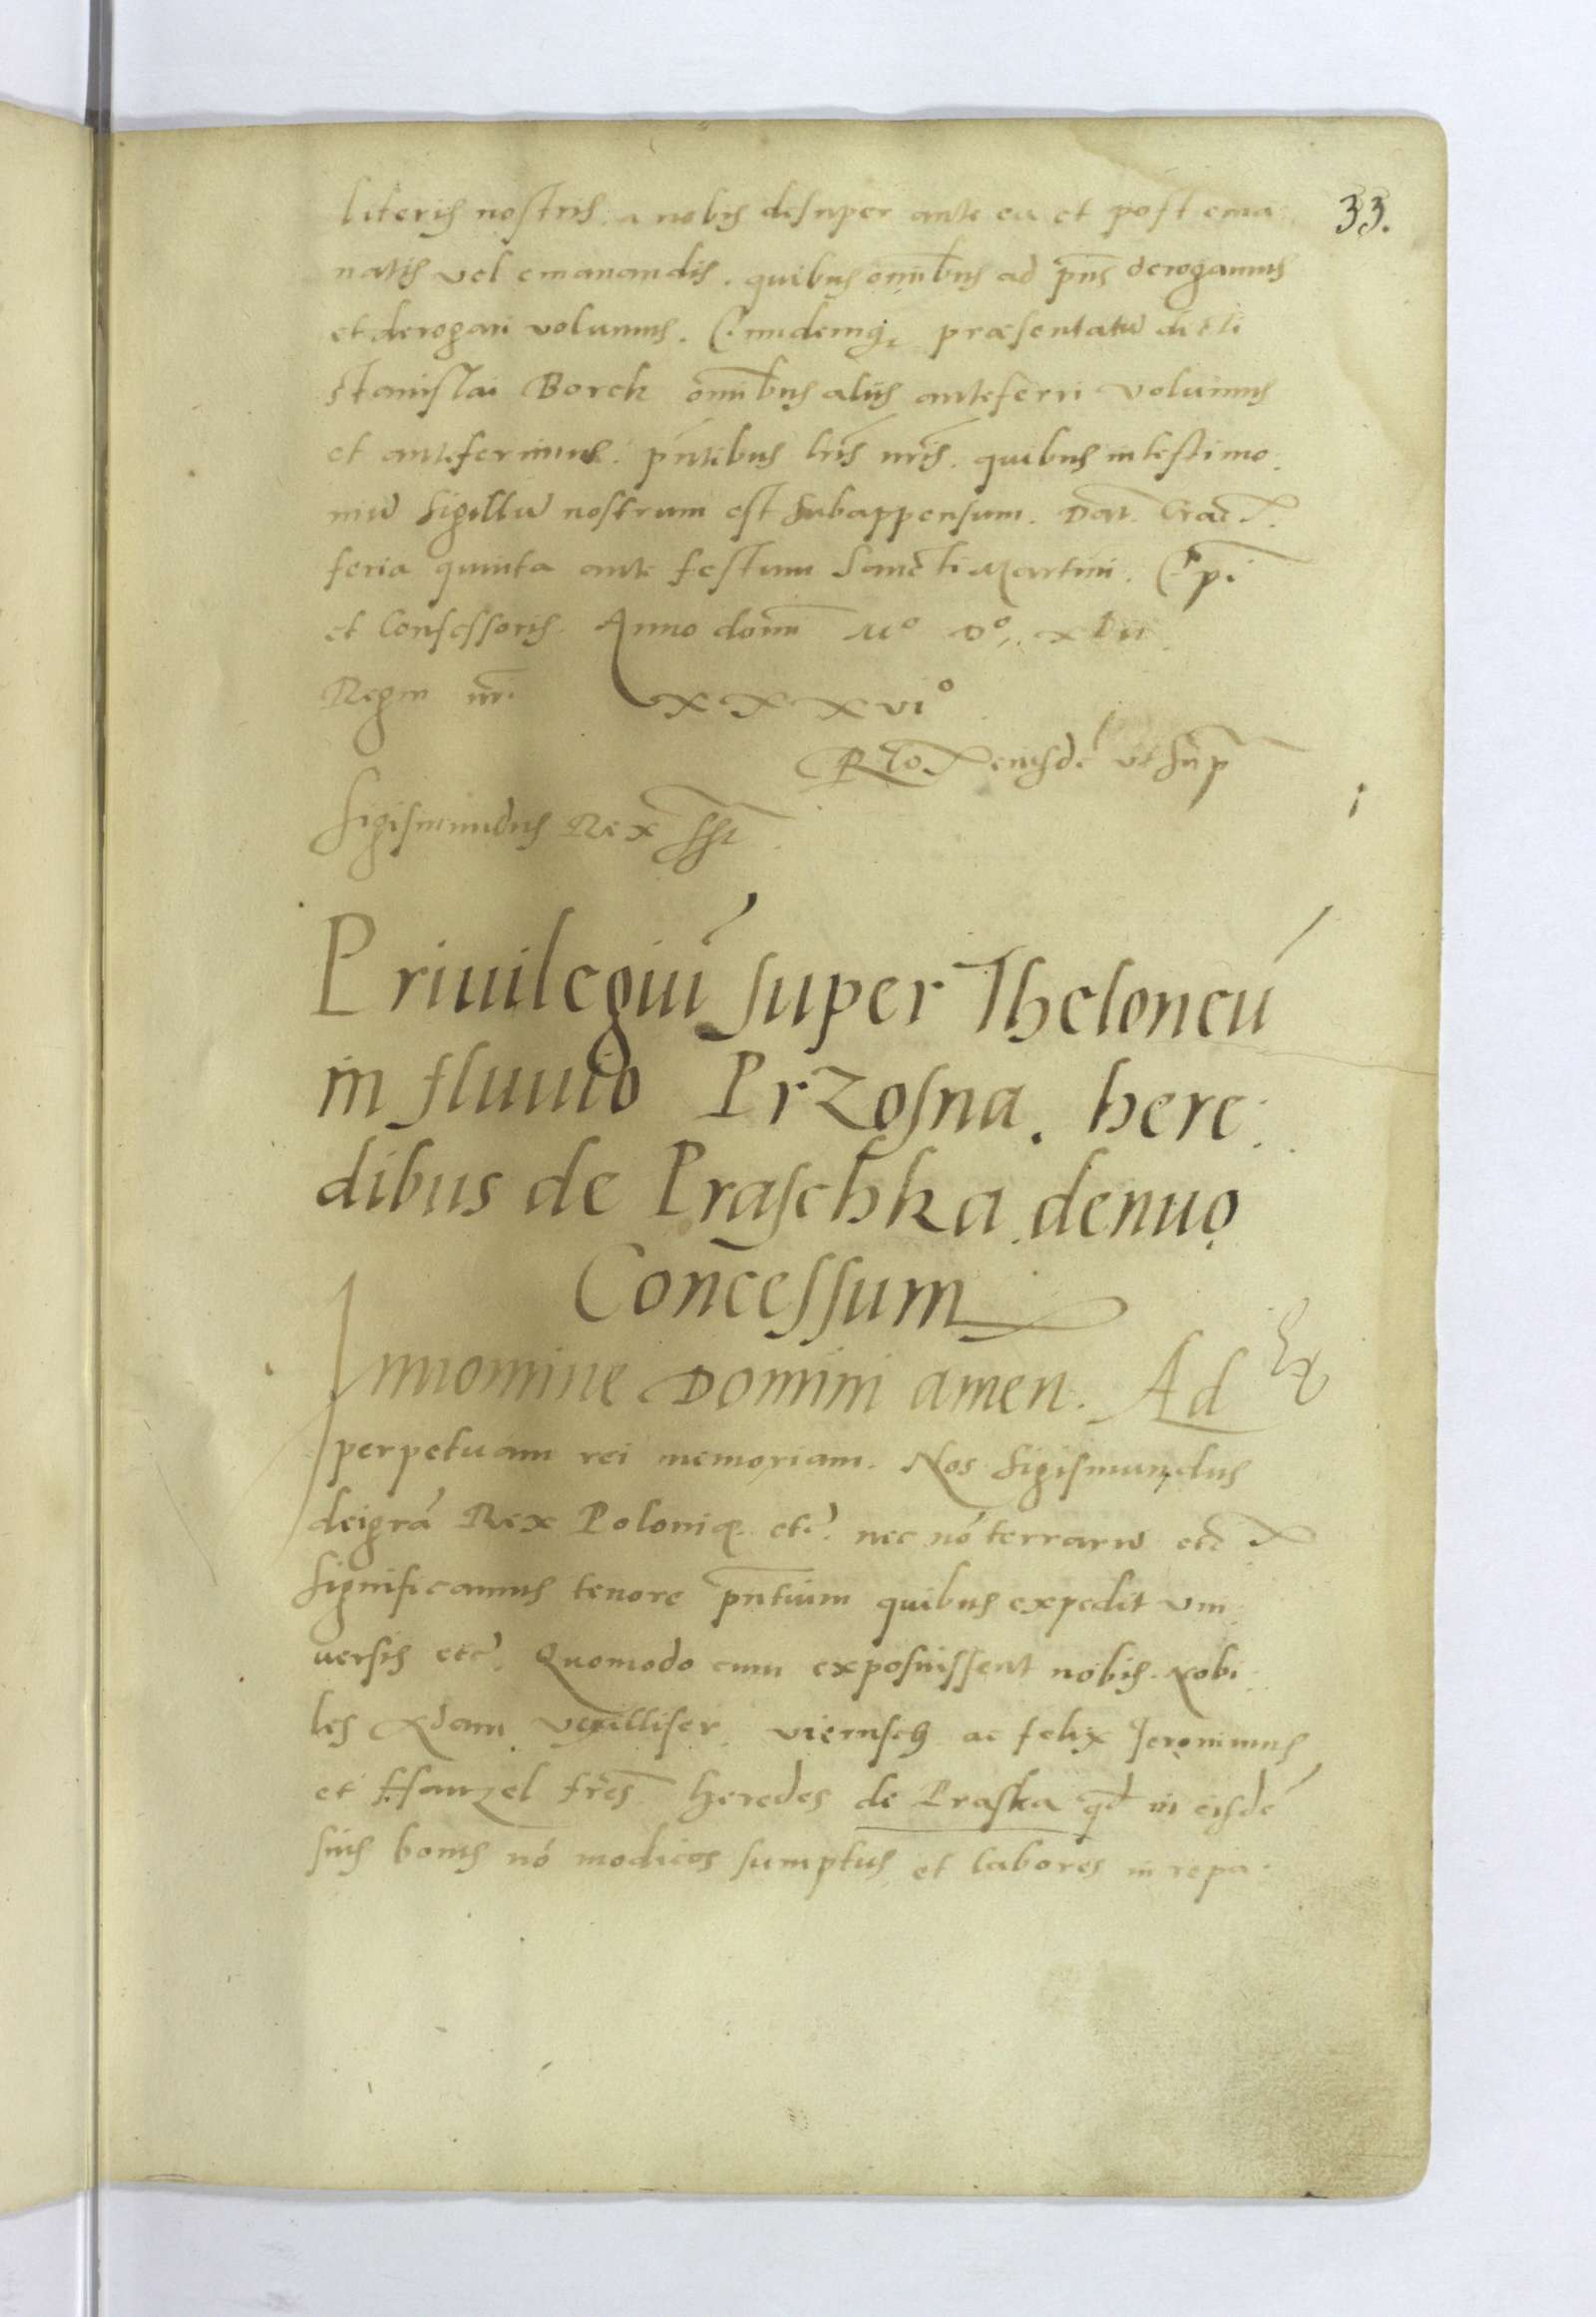 33.
literis nostris. a nobis desuper ante ea et post ema:
natis vel emanandis. quibus omībus ad pn̄s derogamus
et derogari volumus. Eundemq; præsentatū dicti
Stanislai Borek omībus aliis anteferri volumus
et anteferimus. pn̄tibus lr̄is nr̄is. quibus in testimo:
niū sigillū nostrum est subappensum. Dat. Crac
feria quinta ante festum Sancti Martini. Ep̄i
et Confessoris. Anno domī M° D°. xlii
Regni nr̄i xxxvi°
Rlo eiusdē ut sup̄
Sigismundus Rex sst
Priuilegiū super Theloneū
in fluuio Przosna. here:
dibus de Praschka denuo
Concessum
In nomine Domini amen. Ad
perpetuam rei memoriam. Nos Sigismundus
dei grā Rex Polonię. etc. nec nō terrarū etc
Significamus tenore pn̄tium quibus expedit vni:
uersis etc. Quomodo cum exposuissent nobis. Nobi:
les Adam vexillifer. ac felix Jeronimus
et Hanzel frēs heredes de Praska qd in eisdē
suis bonis nō modicos sumptus et labores in repa: